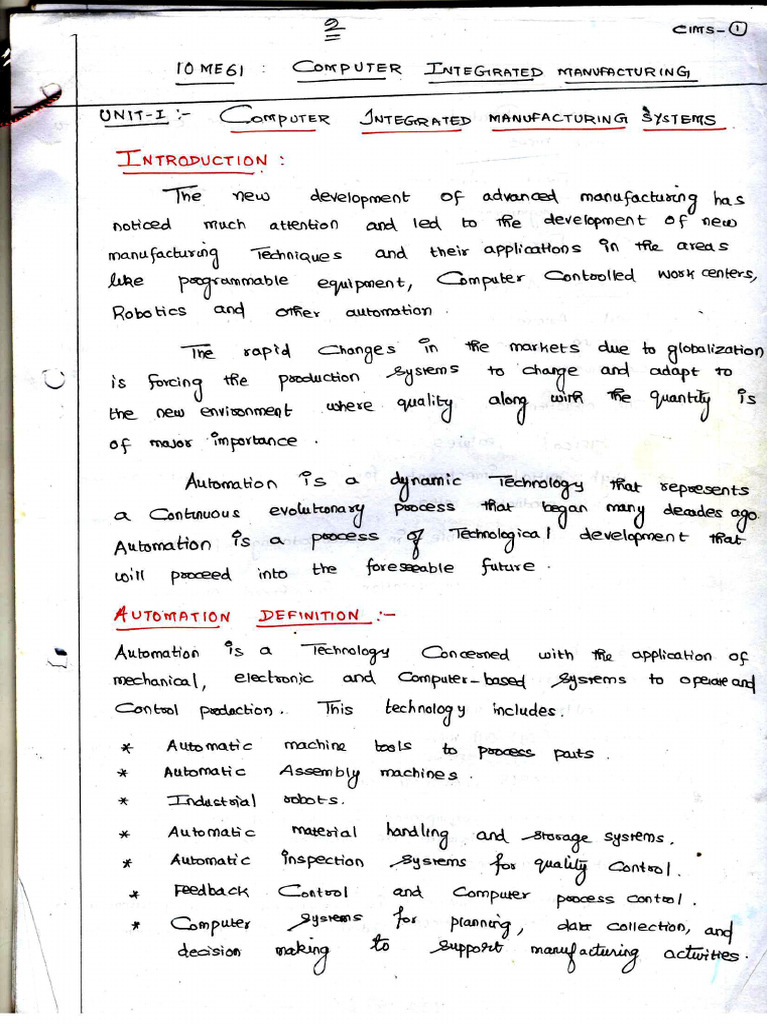 2
CIMS-①
10ME61 : COMPUTER INTEGRATED MANUFACTURING
UNIT-I :- COMPUTER INTEGRATED MANUFACTURING SYSTEMS
INTRODUCTION :
The new development of advanced manufacturing has
noticed much attention and led to the development of new
manufacturing Techniques and their applications in the areas
like programmable equipment, Computer Controlled work centers,
Robotics and other automation.
The rapid Changes in the markets due to globalization
is forcing the production systems to change and adapt to
the new environment where quality along with the quantity is
of major importance.
Automation is a dynamic Technology that represents
a Continuous evolutionary process that began many decades ago.
Automation is a process of Technological development that
will proceed into the foreseeable future.
AUTOMATION DEFINITION :-
Automation is a Technology Concerned with the application of
mechanical, electronic and Computer-based systems to operate and
Control production. This technology includes.
* Automatic machine tools to process parts.
* Automatic Assembly machines.
* Industrial robots.
* Automatic material handling and storage systems.
* Automatic inspection systems for quality control.
* Feedback Control and Computer process control.
* Computer systems for planning, data collection, and
decision making to support manufacturing activities.